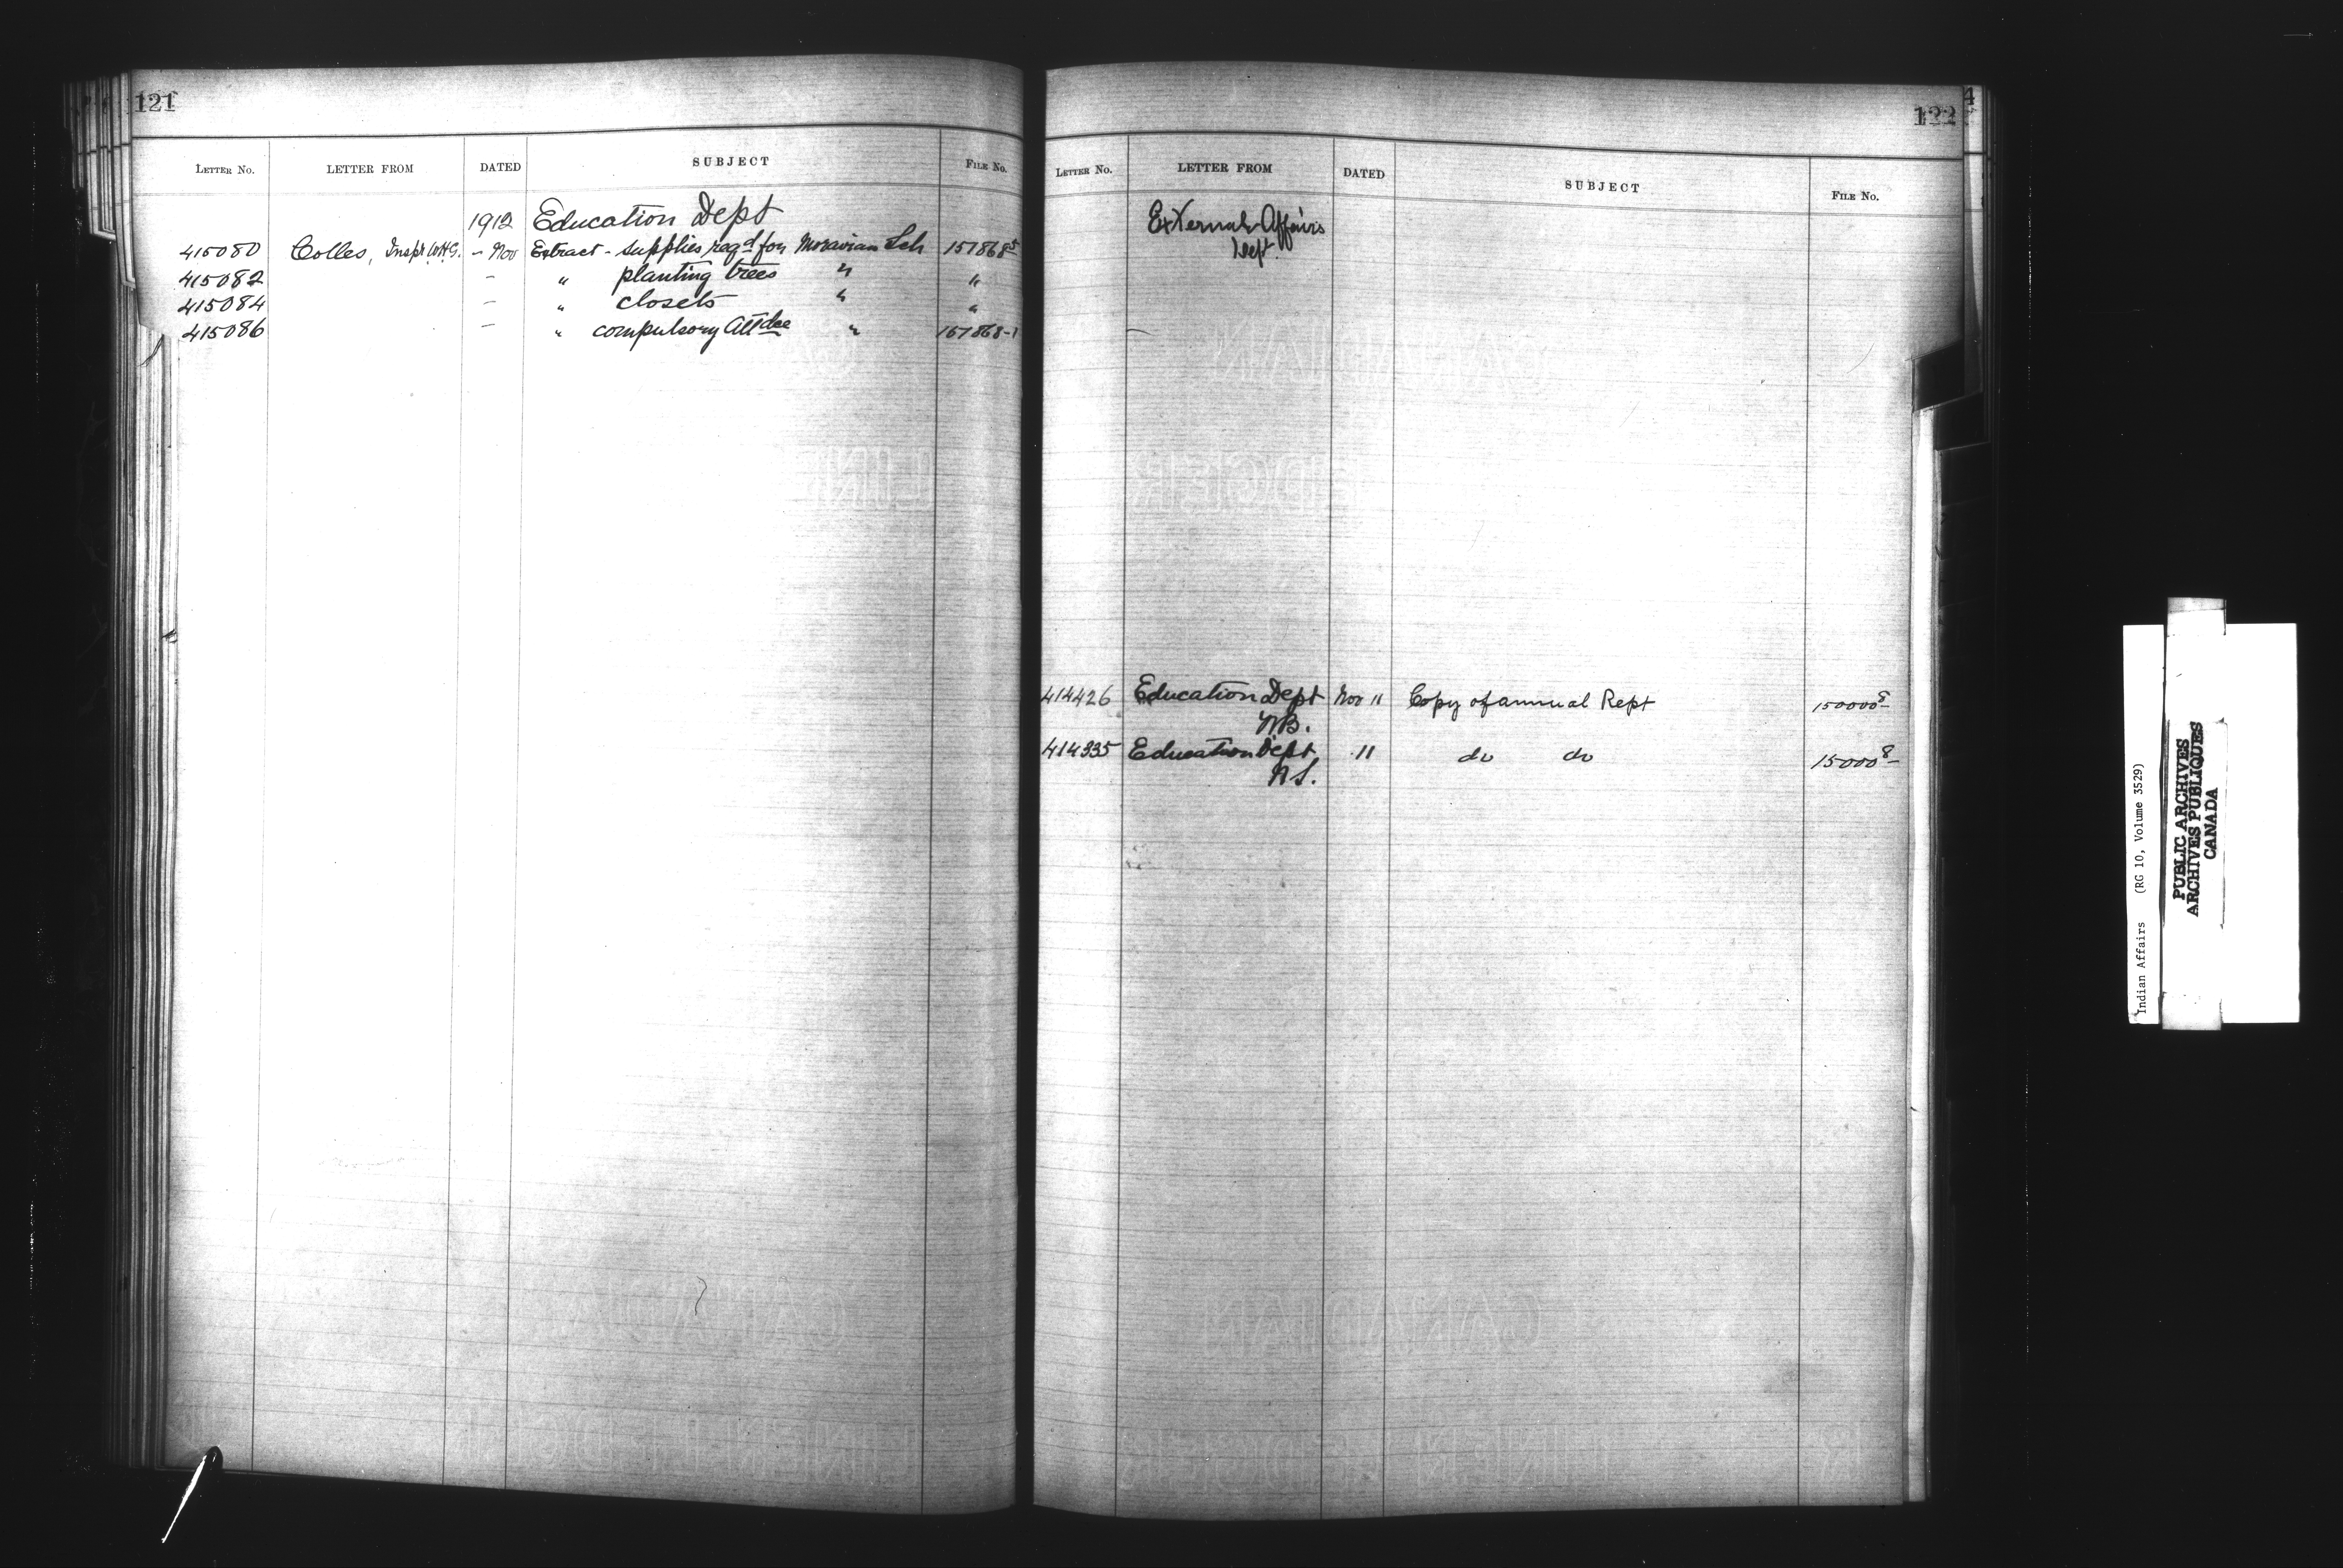 121
LETTER NO. LETTER FROM DATED SUBJECT FILE NO.
1912 Education Dept
415080 Colles, Inspr. W.H.G. - Nov Extract - supplies reqd for Moravian Sch 157868-5
415082 - " planting trees " "
415084 - " closets " "
415086 - " compulsory Attdce " 157868-1
122
LETTER NO. LETTER FROM DATED SUBJECT FILE NO.
External Affairs
Dept.
414426 Education Dept Nov 11 Copy of annual Rept 150000-8
N.B.
414335 Education Dept. 11 do do 15000-8
N.S.
Indian Affairs (RG 10, Volume 3529)
PUBLIC ARCHIVES
ARCHIVES PUBLIQUES
CANADA